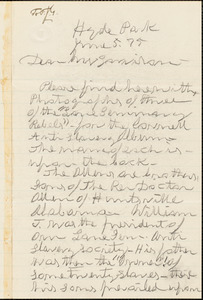 Hyde Park
June 5. 75
Dear Mr Garrison—
Please find herewith
Photographs of three
of the "Lane Seminary
Rebels"—for the Cornell
Anti Slavery Album
The name of each is
upon the back.
The Allens are brothers
sons of the Rev Doctor
Allen of Huntsville
Alabama William
T. was the president of
our Lane Sem. Anti
Slavery Society—His father
was then the "owner" of
some twenty slaves—
his sons prevailed upon